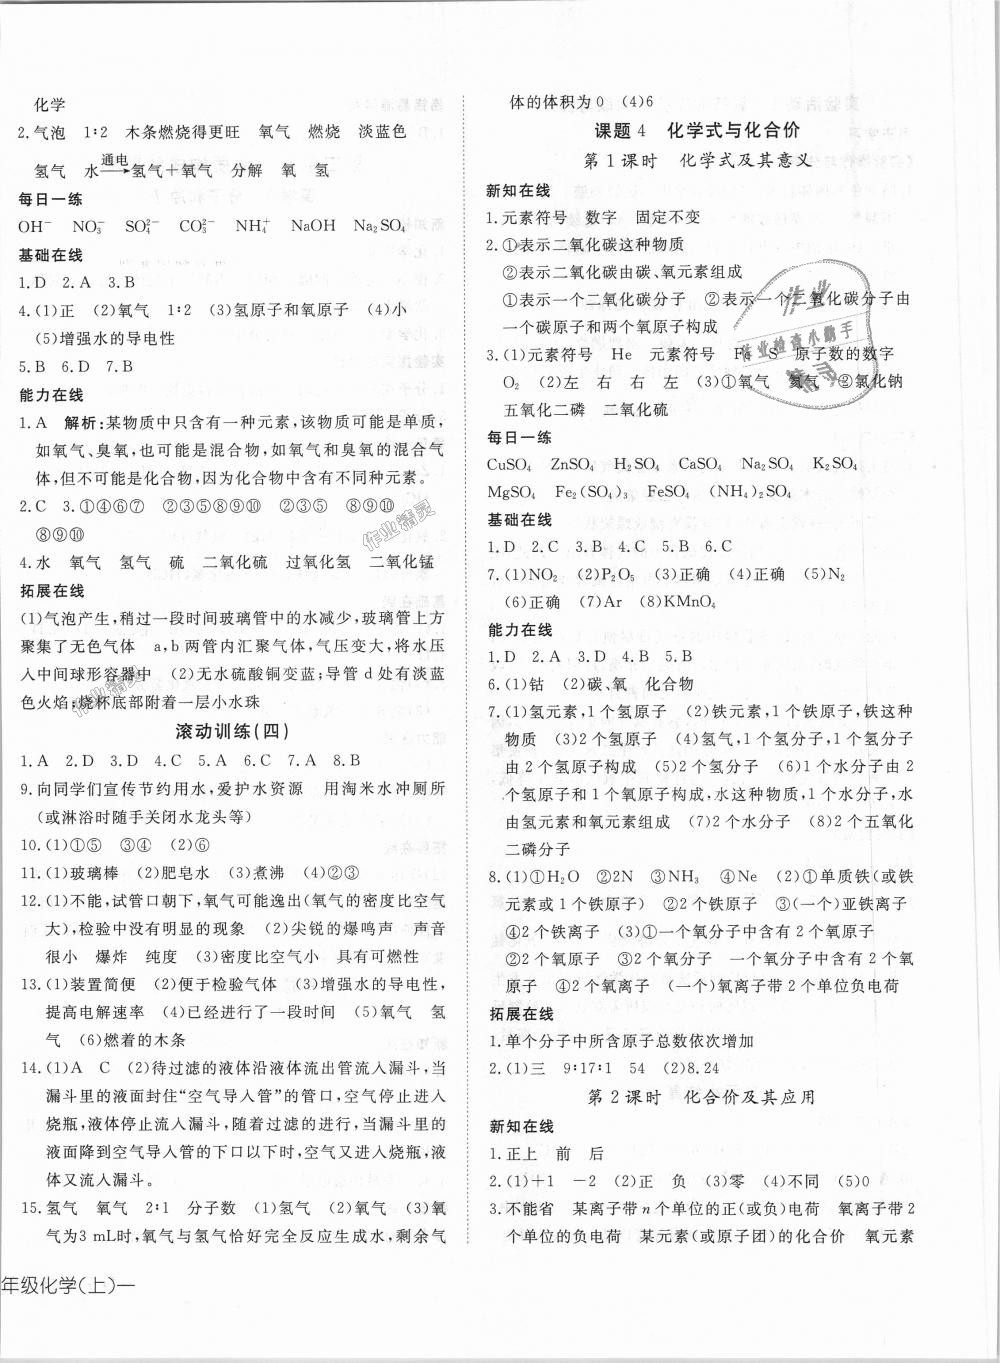 化学
2.气泡 1∶2 木条燃烧得更旺 氧气 燃烧 淡蓝色
氢气 水 通电→ 氢气+氧气 分解 氧 氢
每日一练
OH⁻ NO₃⁻ SO₄²⁻ CO₃²⁻ NH₄⁺ NaOH Na₂SO₄
基础在线
1.D 2.A 3.B
4.(1)正 (2)氧气 1∶2 (3)氢原子和氧原子 (4)小
(5)增强水的导电性
5.B 6.D 7.B
能力在线
1.A 解析:某物质中只含有一种元素,该物质可能是单质,
如氧气、臭氧,也可能是混合物,如氧气和臭氧的混合气
体,但不可能是化合物,因为化合物中含有不同种元素。
2.C 3.①④⑥⑦ ②③⑤⑧⑨⑩ ②③⑤ ⑧⑨⑩
⑧⑨⑩
4.水 氧气 氢气 硫 二氧化硫 过氧化氢 二氧化锰
拓展在线
(1)气泡产生,稍过一段时间玻璃管中的水减少,玻璃管上方
聚集了无色气体 a,b两管内汇聚气体,气压变大,将水压
入中间球形容器中 (2)无水硫酸铜变蓝;导管d处有淡蓝
色火焰;烧杯底部附着一层小水珠
滚动训练(四)
1.A 2.D 3.D 4.C 5.A 6.C 7.A 8.B
9.向同学们宣传节约用水,爱护水资源 用淘米水冲厕所
(或淋浴时随手关闭水龙头等)
10.(1)①⑤ ③④ (2)⑥
11.(1)玻璃棒 (2)肥皂水 (3)煮沸 (4)②③
12.(1)不能,试管口朝下,氧气可能逸出(氧气的密度比空气
大),检验中没有明显的现象 (2)尖锐的爆鸣声 声音
很小 爆炸 纯度 (3)密度比空气小 具有可燃性
13.(1)装置简便 (2)便于检验气体 (3)增强水的导电性,
提高电解速率 (4)已经进行了一段时间 (5)氧气 氢
气 (6)燃着的木条
14.(1)A C (2)待过滤的液体沿液体流出管流入漏斗,当
漏斗里的液面封住“空气导入管”的管口,空气停止进入
烧瓶,液体停止流入漏斗,随着过滤的进行,当漏斗里的
液面降到空气导入管的下口以下时,空气又进入烧瓶,液
体又流入漏斗。
15.氢气 氧气 2∶1 分子数 (1)氢气 (2)氧气 (3)氧
气为3 mL时,氧气与氢气恰好完全反应生成水,剩余气
年级化学(上)一
体的体积为0 (4)6
课题4 化学式与化合价
第1课时 化学式及其意义
新知在线
1.元素符号 数字 固定不变
2.①表示二氧化碳这种物质
②表示二氧化碳由碳、氧元素组成
①表示一个二氧化碳分子 ②表示一个二氧化碳分子由
一个碳原子和两个氧原子构成
3.(1)元素符号 He 元素符号 Fe S 原子数的数字
O₂ (2)左 右 右 左 (3)①氧气 氦气 ②氯化钠
五氧化二磷 二氧化硫
每日一练
CuSO₄ ZnSO₄ H₂SO₄ CaSO₄ Na₂SO₄ K₂SO₄
MgSO₄ Fe₂(SO₄)₃ FeSO₄ (NH₄)₂SO₄
基础在线
1.D 2.C 3.B 4.C 5.B 6.C
7.(1)NO₂ (2)P₂O₅ (3)正确 (4)正确 (5)N₂
(6)正确 (7)Ar (8)KMnO₄
能力在线
1.D 2.A 3.D 4.B 5.B
6.(1)钴 (2)碳、氧 化合物
7.(1)氢元素,1个氢原子 (2)铁元素,1个铁原子,铁这种
物质 (3)2个氢原子 (4)氢气,1个氢分子,1个氢分子
由2个氢原子构成 (5)2个氢分子 (6)1个水分子由2
个氢原子和1个氧原子构成,水这种物质,1个水分子,水
由氢元素和氧元素组成 (7)2个水分子 (8)2个五氧化
二磷分子
8.(1)①H₂O ②2N ③NH₃ ④Ne (2)①单质铁(或铁
元素或1个铁原子) ②2个铁原子 ③(一个)亚铁离子
④2个铁离子 (3)①一个氧分子中含有2个氧原子
②2个氧原子 ③2个氧分子 一个氧分子中含有2个氧
原子 ④2个氧离子 (一个)氧离子带2个单位负电荷
拓展在线
1.单个分子中所含原子总数依次增加
2.(1)三 9∶17∶1 54 (2)8.24
第2课时 化合价及其应用
新知在线
1.正上 前 后
2.(1)+1 -2 (2)正 负 (3)零 (4)不同 (5)0
3.不能省 某离子带n个单位的正(或负)电荷 氧离子带2
个单位的负电荷 某元素(或原子团)的化合价 氧元素
作业
作业检查小帮手
精灵
作业精灵
作业精灵